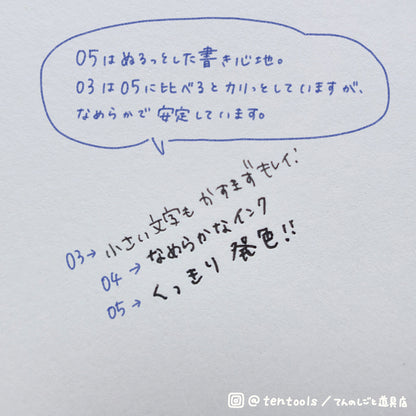 05はぬるっとした書き心地。
03は05に比べるとカリっとしていますが、
なめらかで安定しています。
03→小さい文字もかすまずキレイ!
04→なめらかなインク
05→くっきり発色!!
@tentools/てんのしごと道具店